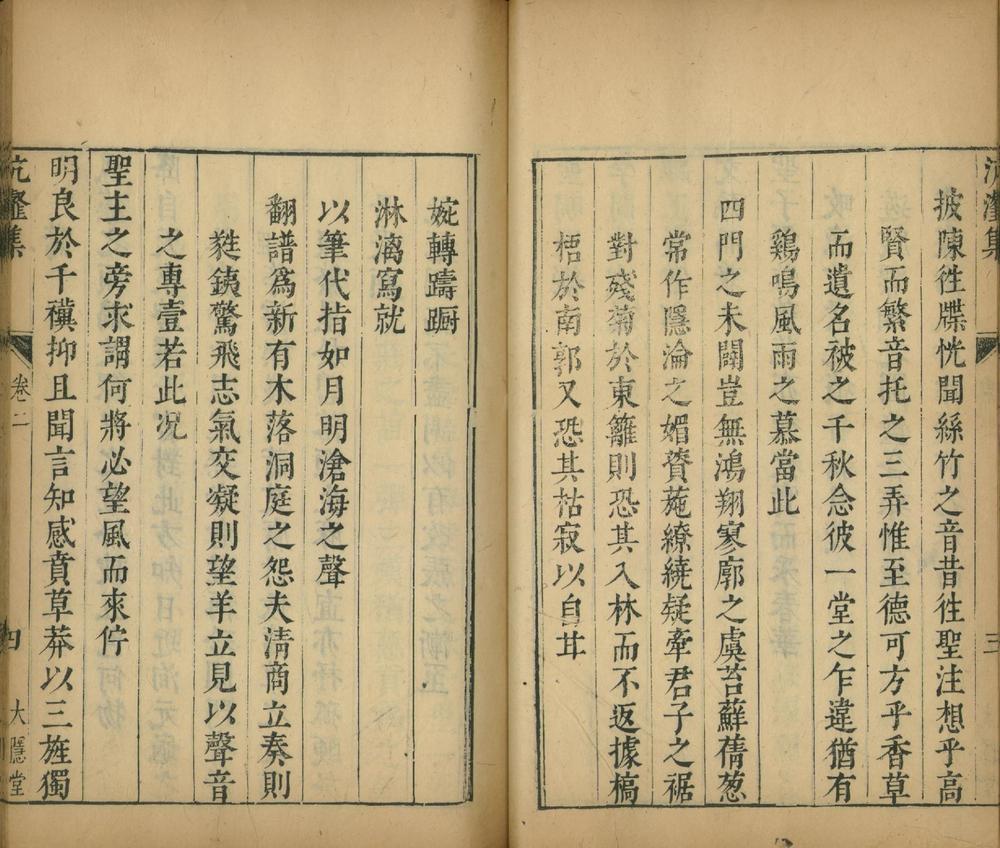 沆瀣集
三
披陳徃牒恍聞絲竹之音昔徃聖注想乎高
賢而繁音托之三弄惟至德可方乎香草
而遺名被之千秋念彼一堂之乍違猶有
鷄鳴風雨之慕當此
四門之未闢豈無鴻翔寥廓之虞苔蘚蒨葱
常作隱淪之媚薲菀繚繞疑牽君子之裾
對殘菊於東籬則恐其入林而不返據槁
梧於南郭又恐其枯寂以自甘
婉轉躊蹰
淋漓寫就
以筆代指如月明滄海之聲
翻譜爲新有木落洞庭之怨夫淸商立奏則
甤銕驚飛志氣交凝則望羊立見以聲音
之專壹若此况
聖主之旁求謂何將必望風而來佇
明良於千禩抑且聞言知感賁草莽以三旌獨
沆瀣集
卷二
四
大隱堂